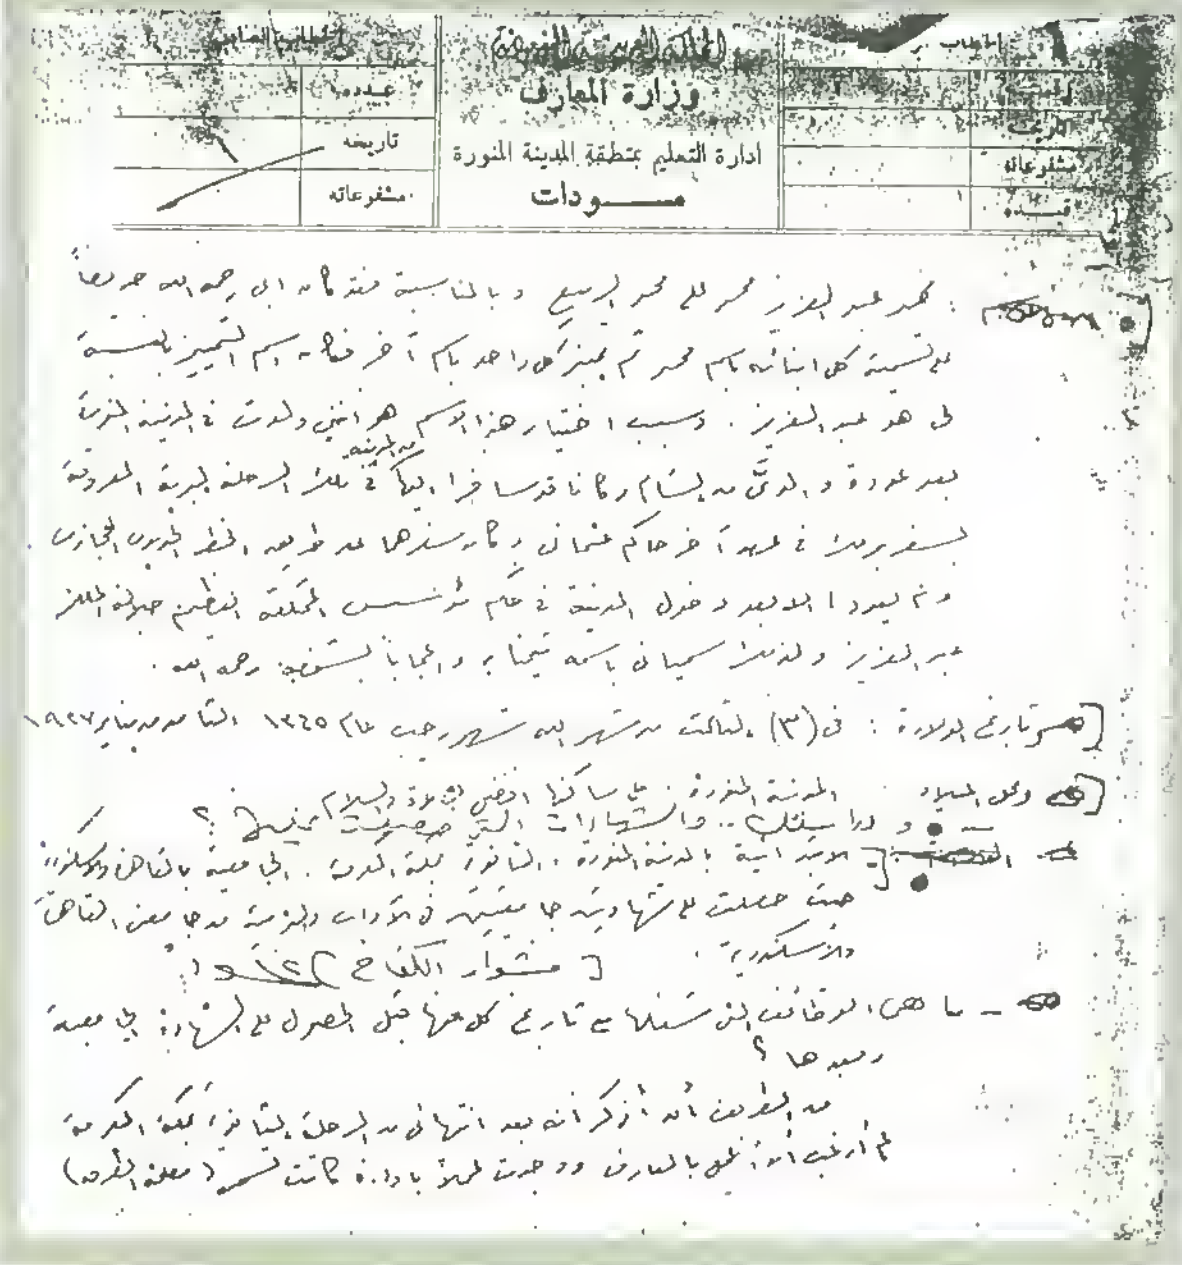 الخطاب الصادر
عدده
تاريخه
مشفوعاته
المملكة العربية السعودية
وزارة المعارف
ادارة التعليم بمنطقة المدينة المنورة
مسودات
مشفوعاته
قيده
محمد عبد العزيز محمد علي محمد الربيع وبالمناسبة فقد كان ابي رحمه الله حريصاً
على تسمية كل ابنائه باسم محمد ثم يميز كل واحد باسم آخر فكان اسم التمييز بالنسبة
لي هو عبد العزيز . وسبب اختيار هذا الاسم هو انني ولدت في المدينة المنورة
بعد عودة والديَّ من الشام وكانا قد سافرا اليها من المدينة في تلك الرحلة المعروفة
بسفر برلك في عهد آخر حاكم عثماني وكان سفرهما عن طريق الخط الحديدي الحجازي .
ولم يعودا الا بعد دخول المدينة في حكم مؤسس المملكة العظيم جلالة الملك
عبد العزيز ولذلك سمياني باسمه تيمنا به واعجاباً بشخصه رحمه الله .
تاريخ الولادة : في (٣) الثالث من شهر الله شهر رجب عام ١٣٤٥ الثامن من يناير ١٩٢٧
ومحل الميلاد المدينة المنورة . على ساكنها افضل الصلاة والسلام
ودراستك .. والشهادات التي حصلت عليها ؟
الابتدائية بالمدينة المنورة ، الثانوية بمكة المكرمة . الجامعية بالقاهرة والاسكندرية
حيث حصلت على شهادتين جامعيتين في الآداب والتربية من جامعتي القاهرة
والاسكندرية .
[ مشوار الكفاح
ما هي الوظائف التي شغلتها مع تاريخ كل منها قبل الحصول على الشهادة الجامعية
وبعدها ؟
من الطريف أن أذكر أنه بعد انتهائي من المرحلة الثانوية بمكة المكرمة
لم أرغب أن أعمل بالمعارف ووجدت عملاً بادارة كانت تسمى (مصلحة الطرق)